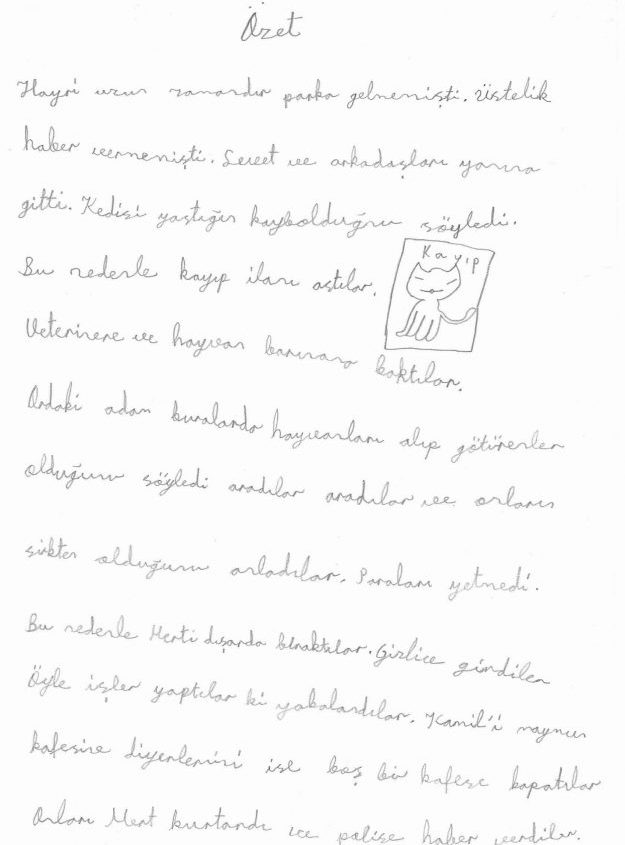 Özet
Hayri uzun zamandır parka gelmemişti. Üstelik
haber vermemişti. Servet ve arkadaşları yanına
gitti. Kedisi yastığın kaybolduğunu söyledi.
Kayıp
Bu nedenle kayıp ilanı astılar.
Veterinere ve hayvan barınağına baktılar.
Ordaki adam buralarda hayvanları alıp götürenler
olduğunu söyledi aradılar aradılar ve onların
sirkten olduğunu anladılar. Paraları yetmedi.
Bu nedenle Merti dışarda bıraktılar. Gizlice girdiler
Öyle işler yaptılar ki yakalandılar. Kamil'i maymun
kafesine diğerlerini ise boş bir kafese kapatılar
Onları Mert kurtardı ve polise haber verdiler.